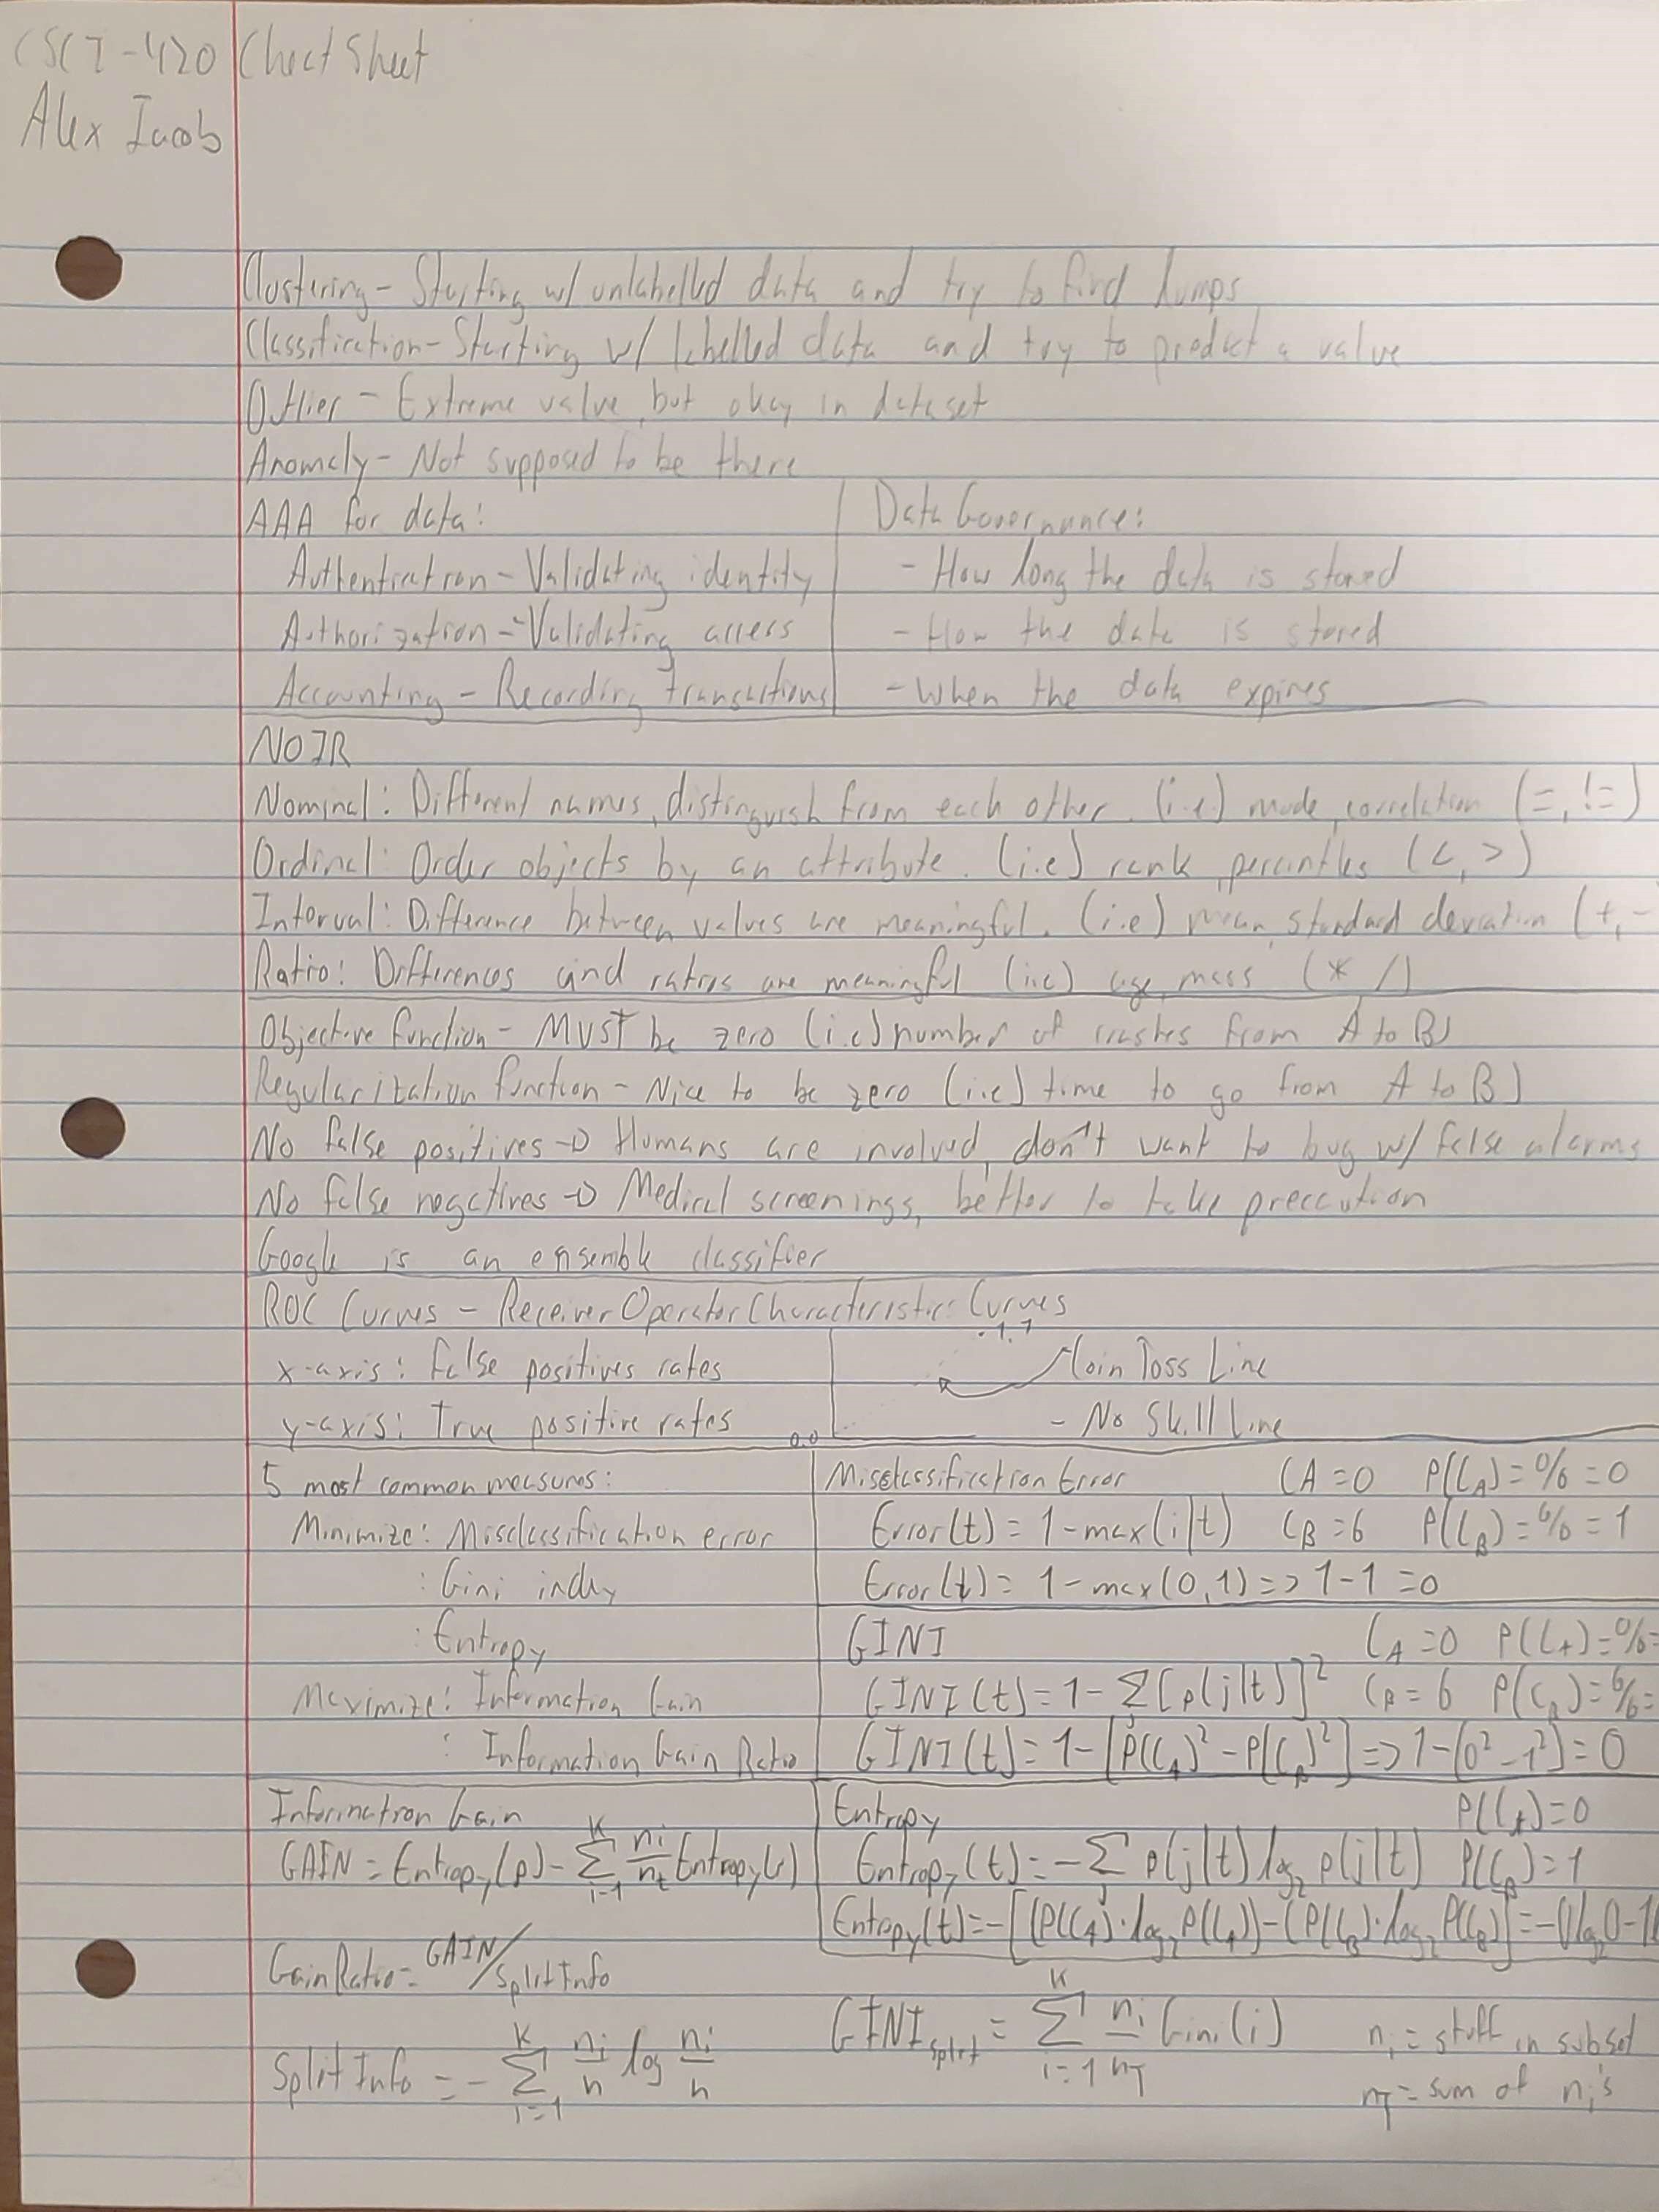 CSCI-420 Cheat Sheet
Alex Iacob
Clustering - Starting w/ unlabelled data and try to find lumps
Classification - Starting w/ labelled data and try to predict a value
Outlier - Extreme value, but okay in dataset
Anomaly - Not supposed to be there
AAA for data:
Authentication - Validating identity
Authorization - Validating access
Accounting - Recording transactions
Data Governance:
- How long the data is stored
- How the data is stored
- When the data expires
NOIR
Nominal: Different names, distinguish from each other. (i.e) mode, correlation (=, !=)
Ordinal: Order objects by an attribute. (i.e) rank, percentiles (<, >)
Interval: Difference between values are meaningful. (i.e) mean, standard deviation (+, -
Ratio: Differences and ratios are meaningful (i.e) age, mass (* /)
Objective function - MUST be zero (i.e) number of crashes from A to B)
Regularization function - Nice to be zero (i.e) time to go from A to B)
No false positives → Humans are involved, don't want to bug w/ false alarms
No false negatives → Medical screenings, better to take precaution
Google is an ensemble classifier
ROC Curves - Receiver Operator Characteristics Curves
x-axis: False positives rates
y-axis: True positive rates
1,1
0,0
Coin Toss Line
- No Skill Line
5 most common measures:
Minimize: Misclassification error
: Gini index
: Entropy
Maximize: Information Gain
: Information Gain Ratio
Misclassification Error CA = 0 P(C_A) = 0/6 = 0
Error(t) = 1 - max(i|t) C_B = 6 P(C_B) = 6/6 = 1
Error(t) = 1 - max(0,1) => 1-1 = 0
GINI C_A = 0 P(C_A) = 0/6 =
GINI(t) = 1 - Σ_j [p(j|t)]² C_B = 6 P(C_B) = 6/6 =
GINI(t) = 1 - [P(C_A)² - P(C_B)²] => 1 - (0² - 1²) = 0
Information Gain
GAIN = Entropy(p) - Σ_{i=1}^{K} n_i/n_t Entropy(i)
Entropy P(C_A) = 0
Entropy(t) = -Σ_j p(j|t) log₂ p(j|t) P(C_B) = 1
Entropy(t) = -[(P(C_A) · log₂ P(C_A)) - (P(C_B) · log₂ P(C_B)] = -(0 log₂ 0 - 1
Gain Ratio = GAIN/Split Info
Split Info = - Σ_{i=1}^{K} n_i/n log n_i/n
GINI_split = Σ_{i=1}^{K} n_i/n_T Gini(i)
n_i = stuff in subset
n_T = sum of n_i's